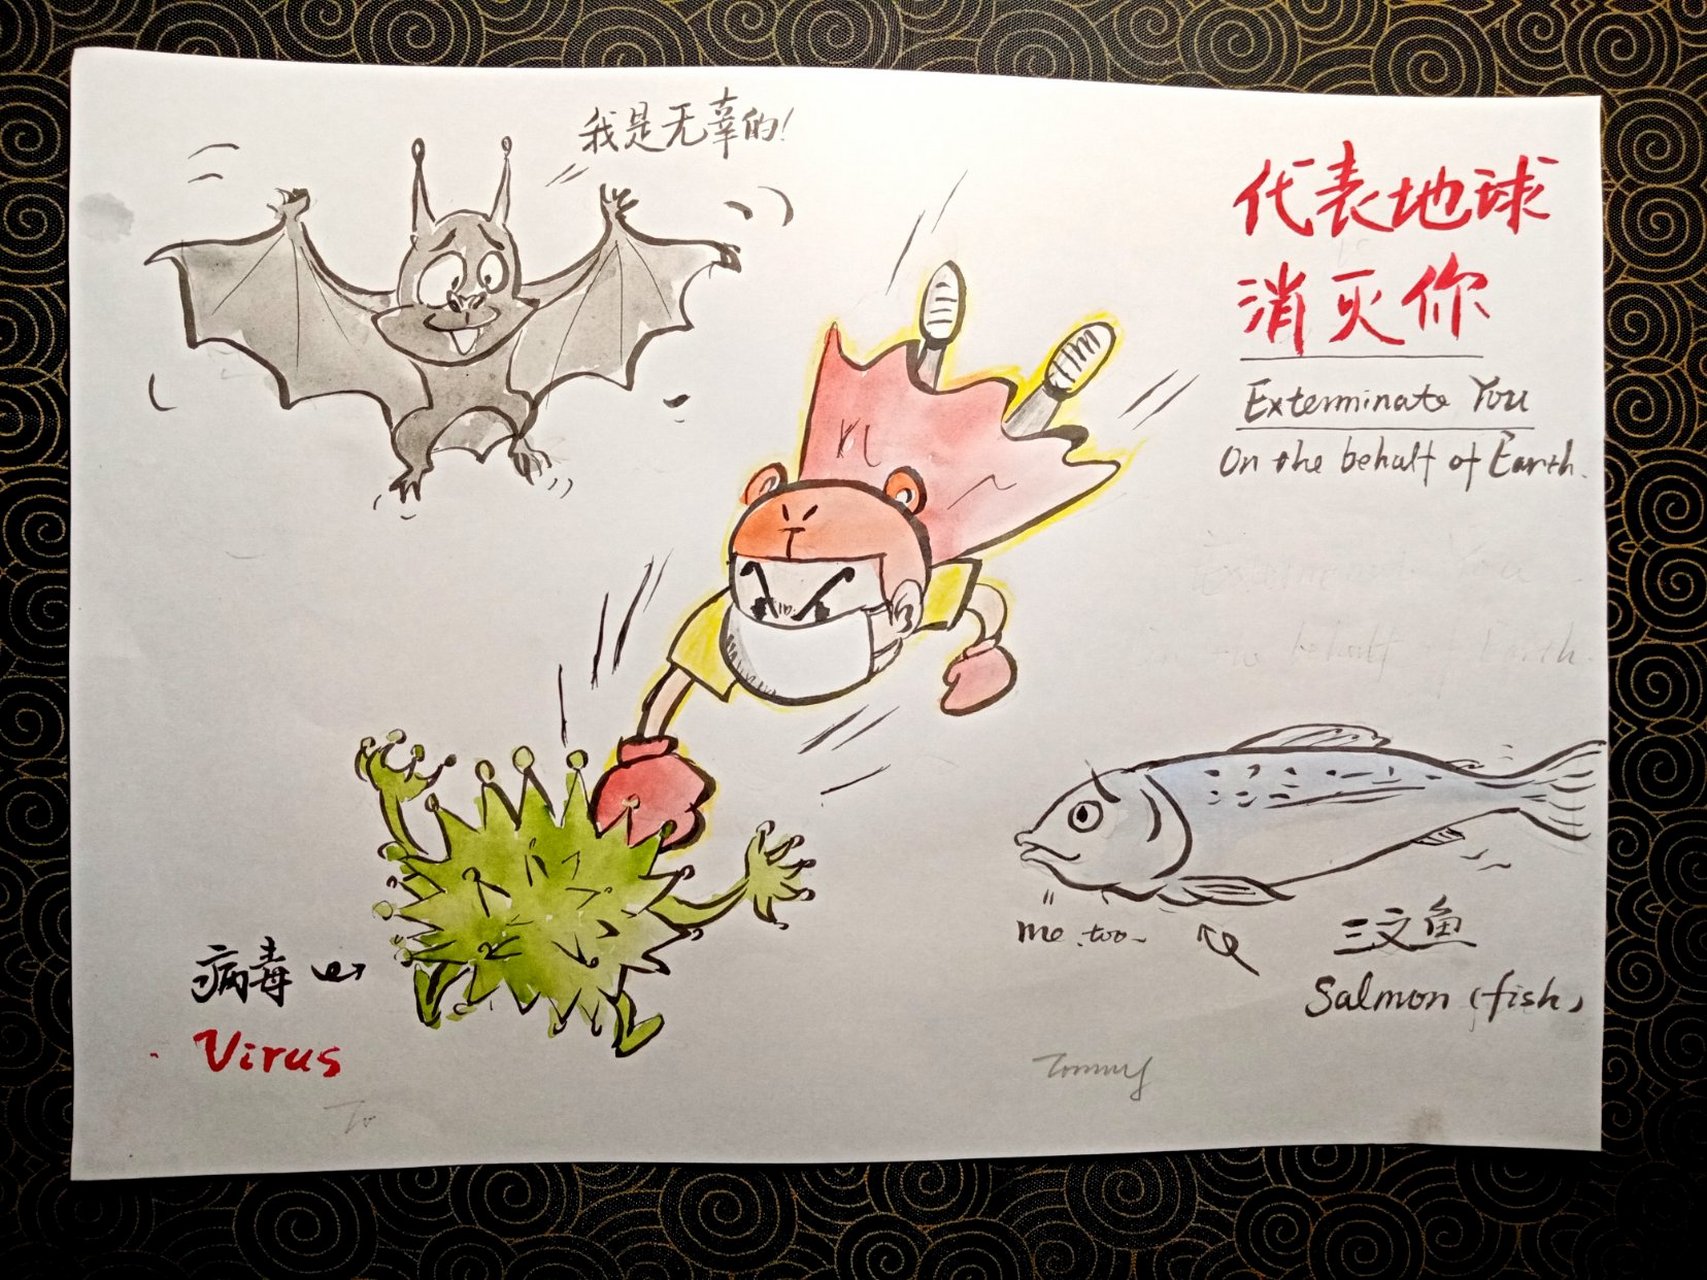 我是无辜的!
代表地球
消灭你
Exterminate You
On the behalf of Earth.
me too
三文鱼
Salmon (fish)
病毒
Virus
Tommy
To